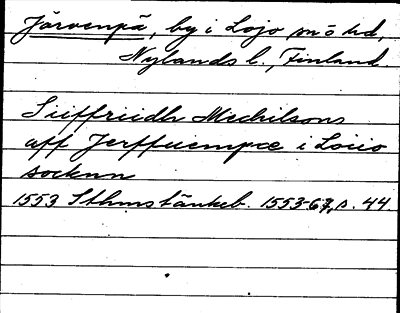 Järvenpä, by i Lojo sn o hd,
Nylands l., Finland.
Siiffriidh Mechilsons
aff Jerffuempæ i Loiio
socknn
1553 Sthms tänkeb. 1553-67, s. 44.